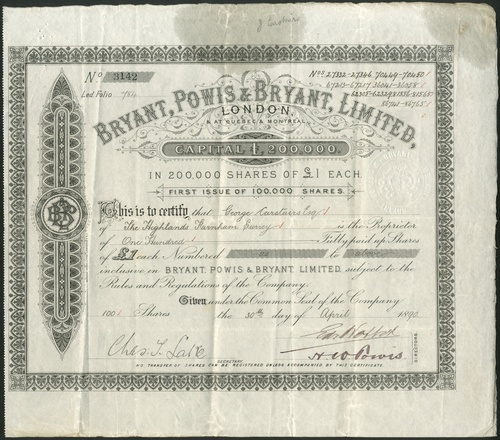 No 3142
Led. Folio 784
Nos 27332-27346, 70449-70450
67213-67217 36041-36058
BRYANT, POWIS & BRYANT, LIMITED,
LONDON,
& AT QUEBEC & MONTREAL.
CAPITAL £1,200,000.
IN 200,000 SHARES OF £1 EACH.
FIRST ISSUE OF 100,000 SHARES.
This is to certify that George Carstairs Esq
of The Highlands Farnham Surrey is the Proprietor
of One Hundred Fully paid up Shares
of £1 each Numbered as to above
inclusive in BRYANT, POWIS & BRYANT, LIMITED, subject to the
Rules and Regulations of the Company.
Given under the Common Seal of the Company
100 Shares the 30th day of April 1890.
Chas. T. Lane
SECRETARY
H W Powis
DIRECTORS
NO TRANSFER OF SHARES CAN BE REGISTERED UNLESS ACCOMPANIED BY THIS CERTIFICATE.